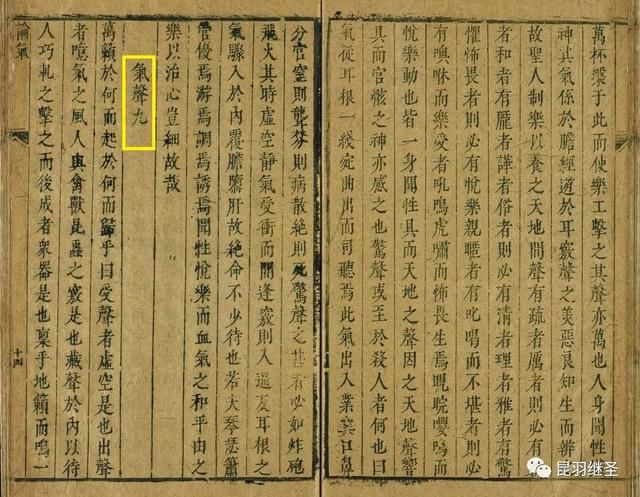 萬杯槃于此而使樂工擊之其聲亦萬也人身聞性
神其氣係於膽經遊於耳竅聲之美惡良知生而辨
故聖人制樂以養之天地間聲有疏者厲者則必有
者和者有厖者譁者俗者則必有清者理者雅者有
懼怖畏者則必有悅樂親暱者有叱喝而不堪者則必
有噢咻而樂受者吼鳴虎嘯而怖畏生焉睍睆嚶鳴而
悅樂動也皆一身聞性具而天地之聲因之天地
具而官骸之神亦感之也驚聲或至於殺人者何也曰
氣從耳根一綫宛曲出而司聽焉此氣出入業與口鼻
分官窒則聾棼則病散絕則死驚聲之甚者必如炸砲
飛火其時虛空靜氣受衝而開逢竅則入逼及耳根之
氣驟入於內覆膽隳肝故絕命不少待也若大琴瑟簫
管優焉游焉調焉誘焉聞性悅樂而血氣之和平由之
樂以治心豈細故哉
氣聲九
萬籟於何而起於何而歸乎曰受聲者虛空是也出聲
者噫氣之風人與禽獸昆蟲之竅是也藏聲於內以待
人巧軋之擊之而後成者衆器是也稟乎地籟而鳴一
論氣
十四
昆羽继圣